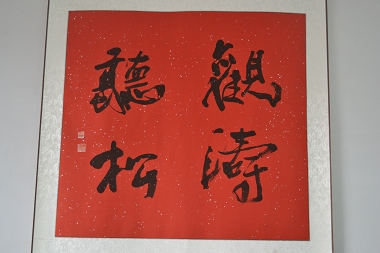 觀濤
聽松